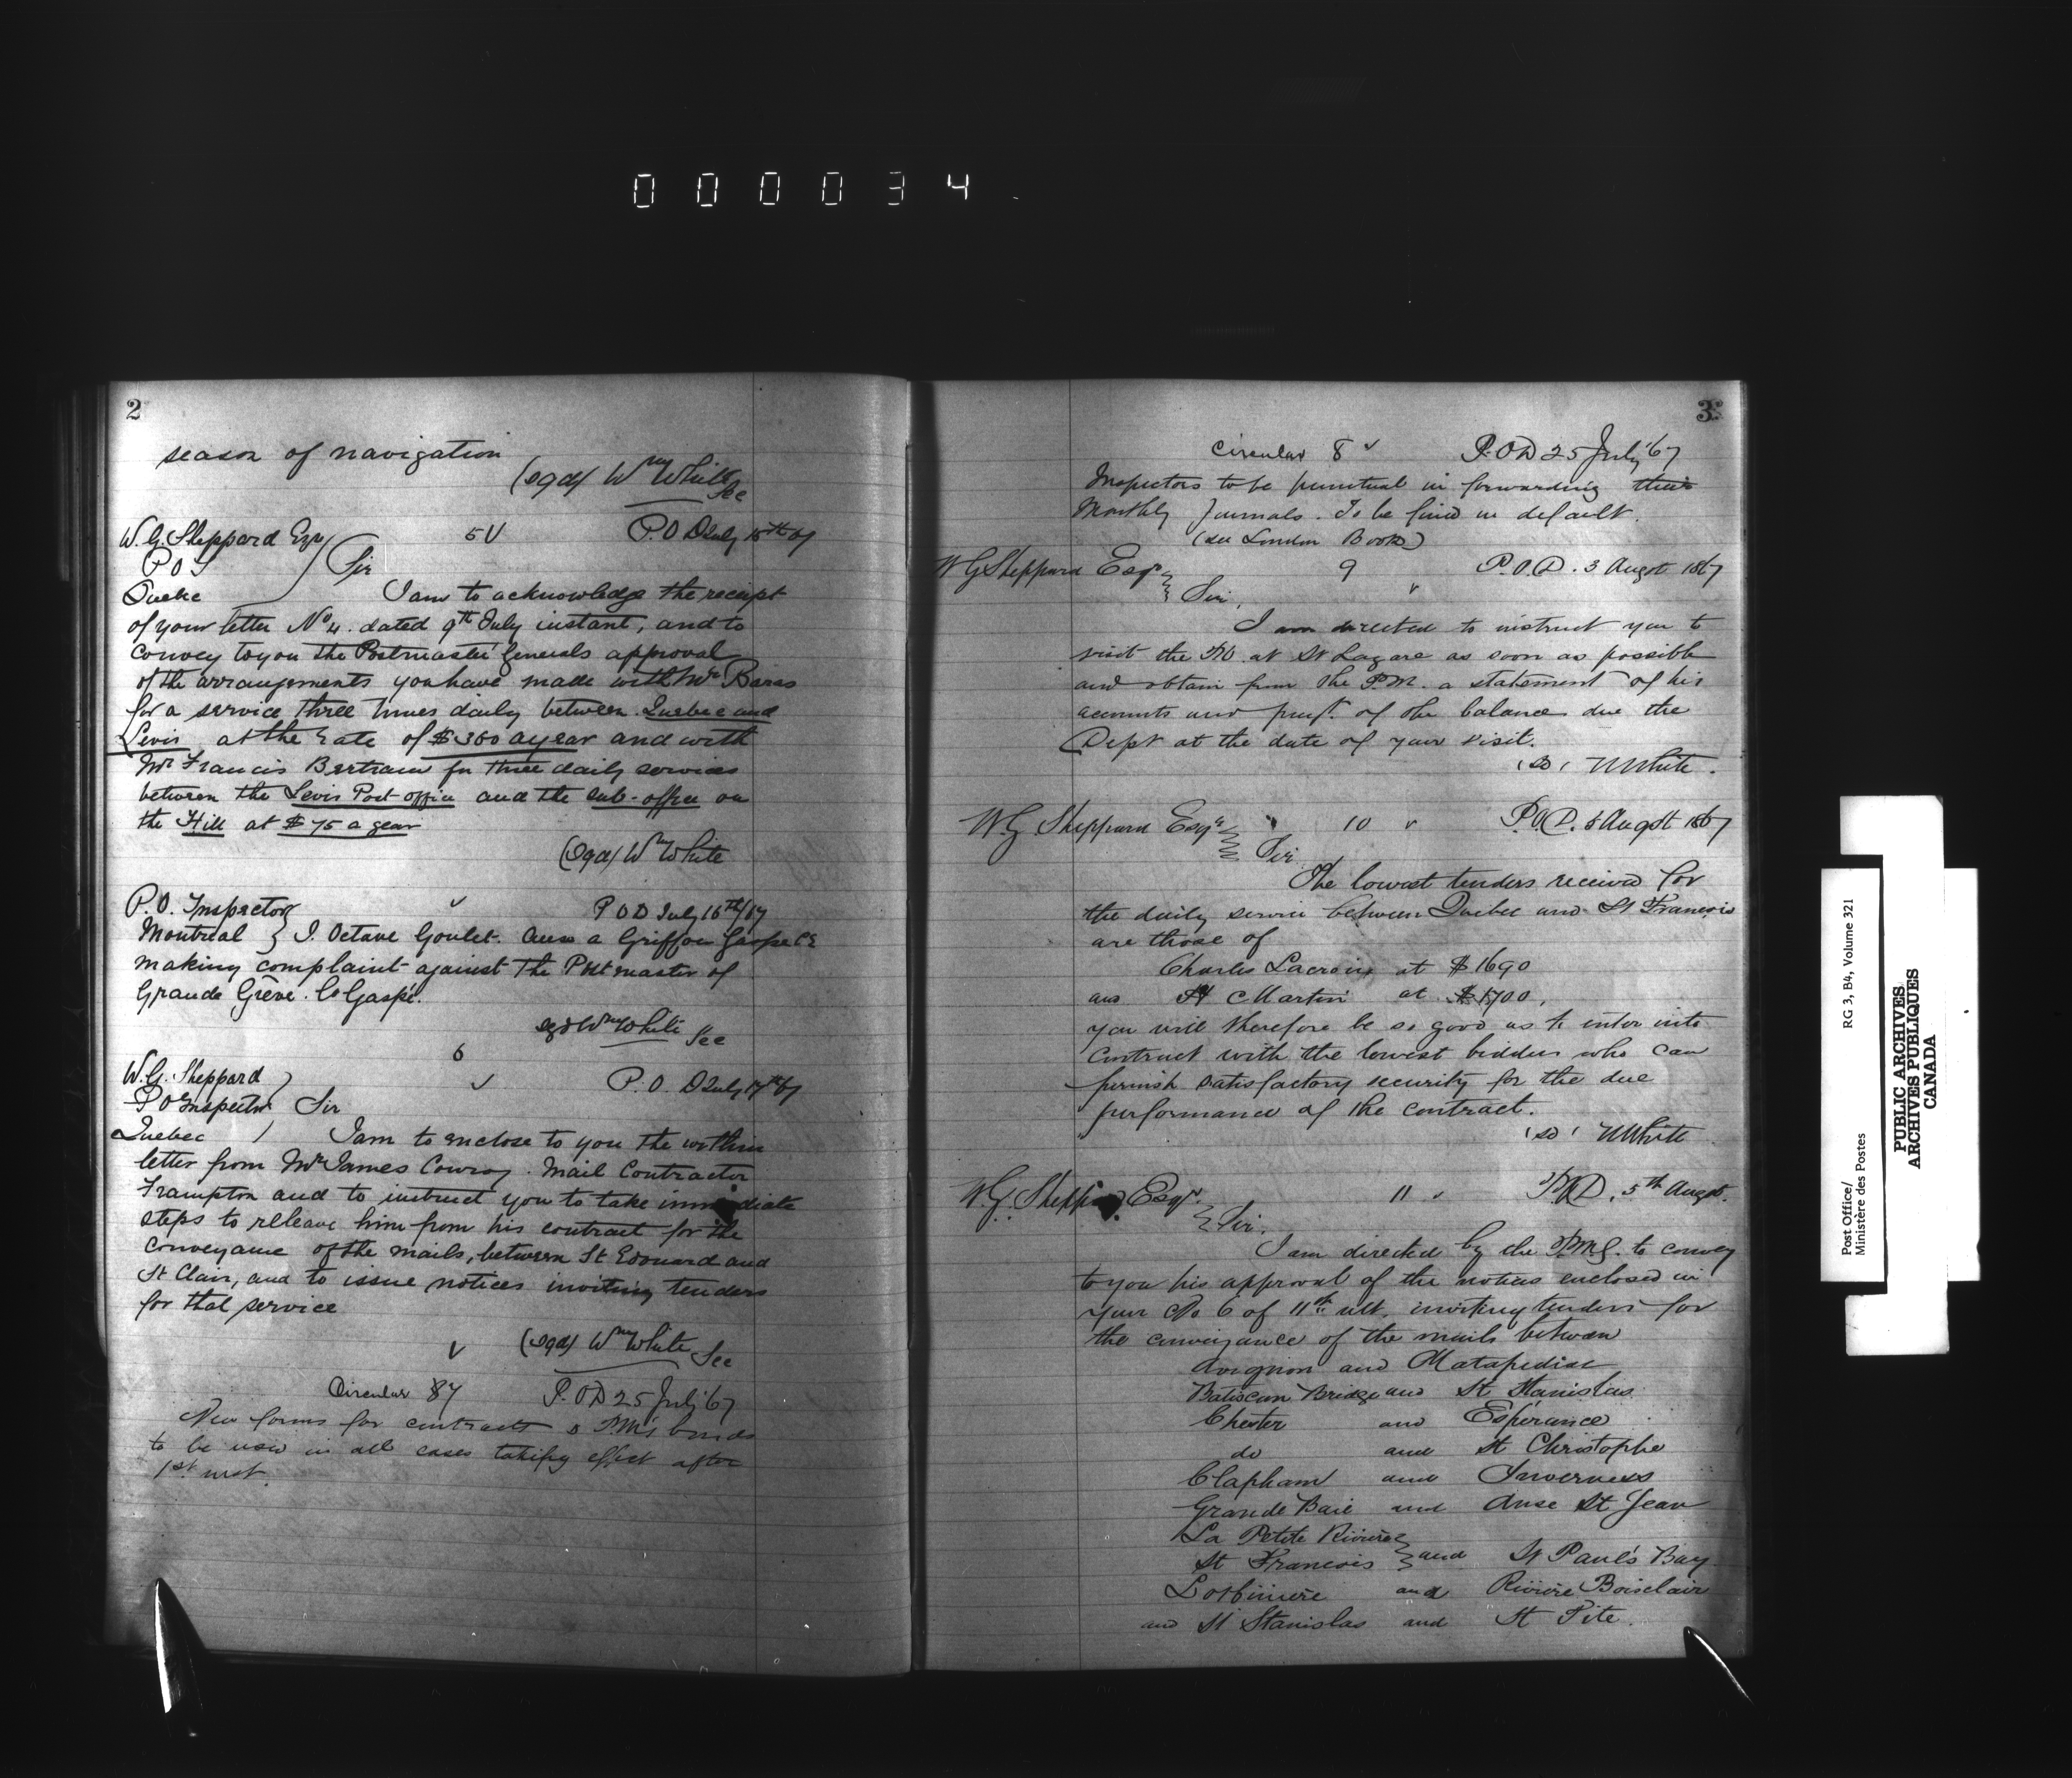 000034
2
season of navigation
(sgd) Wm White
Sec
W. G. Sheppard Esqr 5 P.O D July 15th 67
P O I Sir
Quebec I am to acknowledge the receipt
of your letter No 4. dated 9th July instant, and to
convey to you the Postmaster Generals approval
of the arrangements you have made with Mr Baras
for a service three times daily between Quebec and
Levis at the rate of $360 a year and with
Mr Francis Bertram for three daily services
between the Levis Post office and the sub-office on
the Hill at $75 a year
(Sgd) Wm White
P.O. Inspector P O D July 16th/67
Montreal J. Octave Goulet. Anse a Griffon Gaspe CE
making complaint against the Postmaster of
Grande Grève. Co Gaspé.
sgd Wm White Sec
6
W. G. Sheppard P. O. D July 17th 67
P O Inspector Sir
Quebec I am to enclose to you the within
letter from Mr James Conroy. Mail Contractor
Frampton and to instruct you to take immediate
steps to releave him from his contract for the
conveyance of the mails, between St Edouard and
St Clair, and to issue notices inviting tenders
for that service
(Sgd) Wm White Sec
Circular 87 P. O D 25 July '67
New forms for contracts & P.M's bonds
to be used in all cases taking effect after
1st inst.
3
Circular 8 P. O D 25 July '67
Inspectors to be punctual in forwarding their
Monthly Journals. To be fined in default.
(see London Book)
W G Sheppard Esqr 9 P.O.D. 3 Augst 1867
Sir,
I am directed to instruct you to
visit the PO. at St Lazare as soon as possible
and obtain from the P.M. a statement of his
accounts and paymt. of the balance due the
Dept at the date of your visit.
(sd) W White.
W G Sheppard Esqr 10 P.O.D. 5 Augst 1867
Sir
The lowest tenders received for
the daily service between Quebec and St Francois
are those of
Charles Lacroix at $1690
and C Martin at $1700,
you will therefore be so good as to enter into
contract with the lowest bidder who can
furnish satisfactory security for the due
performance of the contract.
(sd) W White
W. G. Sheppard Esqr. 11 P.O.D. 5th Augst.
Sir.
I am directed by the P.M.G. to convey
to you his approval of the notices enclosed in
your No 6 of 11th ult. inviting tenders for
the conveyance of the mails between
Avignon and Matapediac
Batiscan Bridge and St Stanislas
Chester and Espérance
do and St Christophe
Clapham and Inverness
Grande Baie and Anse St Jean
La Petite Rivière
St Francois and St Paul's Bay
Lotbiniere and Rivière Boisclair
and St Stanislas and St Tite.
Post Office/
Ministère des Postes
RG 3, B4, Volume 321
PUBLIC ARCHIVES
ARCHIVES PUBLIQUES
CANADA